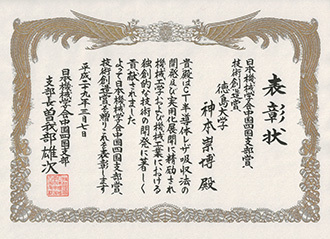 表彰状
日本機械学会中国四国支部賞
技術創造賞
徳島大学
神本崇博 殿
貴殿はCT半導体レーザ吸収法の
開発及び実用化展開に精励され
機械工学および機械工業における
独創的な技術の開発に著しく
貢献されました
よって日本機械学会中国四国支部賞
技術創造賞を贈られ表彰します
平成二十九年三月七日
日本機械学会中国四国支部
支部長 曽我部雄次